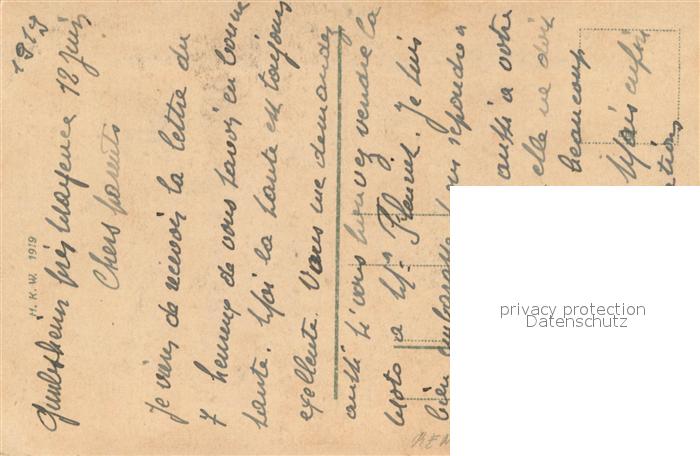 1919
près Mayence 12 juin
Chers parents
Je viens de recevoir la lettre du
7 heureux de vous savoir en bonne
santé. Moi la santé est toujours
excellente. Vous me demandez
aussi si vous pouvez vendre la
Moto a Mr Je suis
bien embarassé répondre a
aussi a votre
elle ne doit
beaucoup
Mais enfin
M.K.W. 1919
privacy protection
Datenschutz